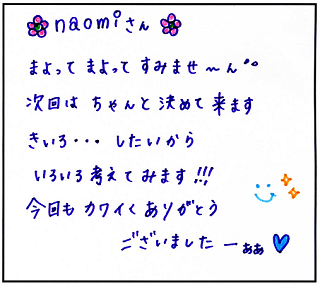 naomiさん
まよって まよって すみませ〜ん°°
次回は ちゃんと 決めて 来ます
きいろ・・・ したいから
いろいろ 考えて みます!!!
今回も カワイく ありがとう
ございましたーぁぁ